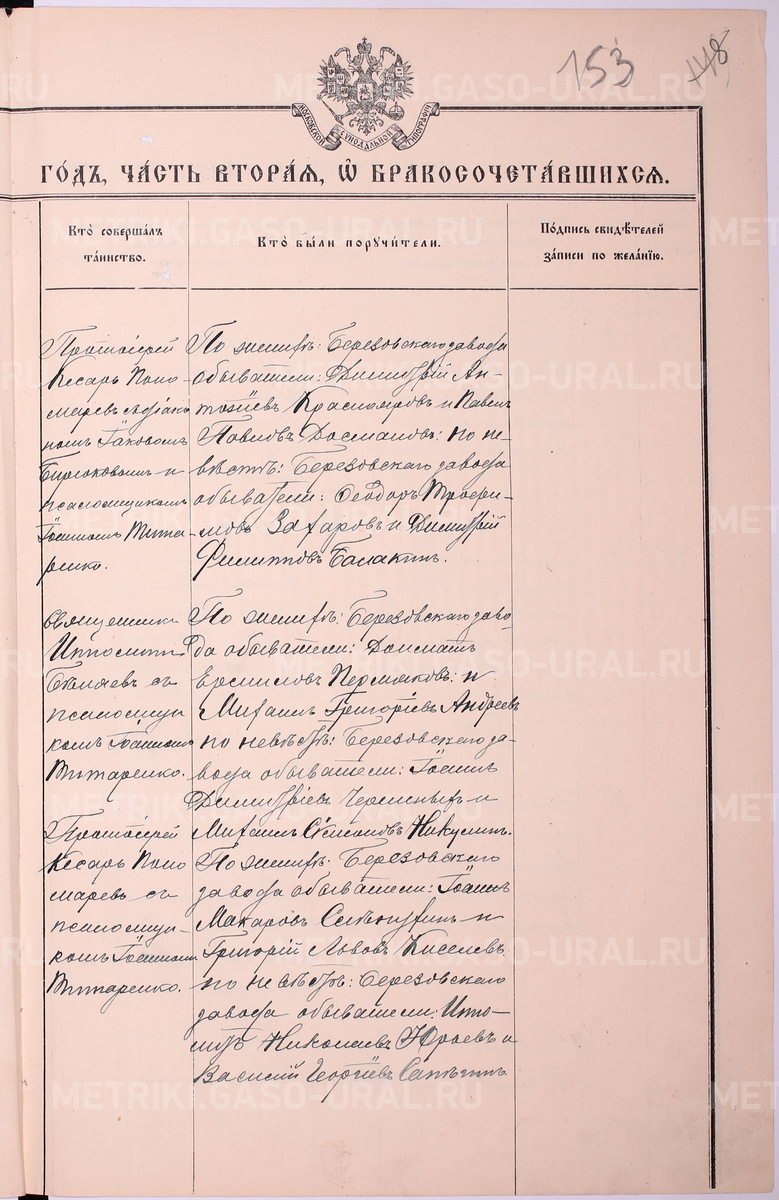 153
148
МОСКОВСКОЙ СѴНОДАЛЬНОЙ ТИПОГРАФІИ
ГО́ДЪ, ЧА́СТЬ ВТОРА́Я, Ѡ҆ БРАКОСОЧЕТА́ВШИХСЯ.
Кто̀ соверша́лъ
та́инство.
Кто̀ бы́ли поручи́тели.
По́дпись свидѣ́телей
за́писи по жела́нїю.
Протоіерей
Кесарь Поно-
маревъ съ діако-
номъ Іаковомъ
Бирюковымъ и
псаломщикомъ
Іоанномъ Тита-
ренко.
По женихѣ: Березовскаго завода
обыватели: Димитрій Ан-
тоніевъ Краснояровъ и Павелъ
Павловъ Досмановъ: по не-
вѣстѣ: Березовскаго завода
обыватели: Ѳеодоръ Трофи-
мовъ Захаровъ и Димитрій
Филипповъ Балакинъ.
Священникъ
Ипполитъ
Бѣляевъ съ
псаломщи
комъ Іоанномъ
Титаренко.
По женихѣ: Березовскаго заво-
да обыватели: Доиматъ
Ермиловъ Пермяковъ: и
Михаилъ Григоріевъ Андреевъ
по невѣстѣ: Березовскаго за-
вода обыватели: Іоаннъ
Димитріевъ Черемныхъ и
Михаилъ Симеоновъ Никулинъ.
Протоіерей
Кесарь Поно
маревъ съ
псаломщи-
комъ Іоанномъ
Титаренко.
По женихѣ: Березовскаго
завода обыватели: Іоаннъ
Макаровъ и
Григорій Львовъ Киселевъ
по невѣстѣ: Березовскаго
завода обыватели: Ипо-
литъ Николаевъ Юраевъ и
Василій Георгіевъ Сапѣгинъ
METRIKI.GASO-URAL.RU